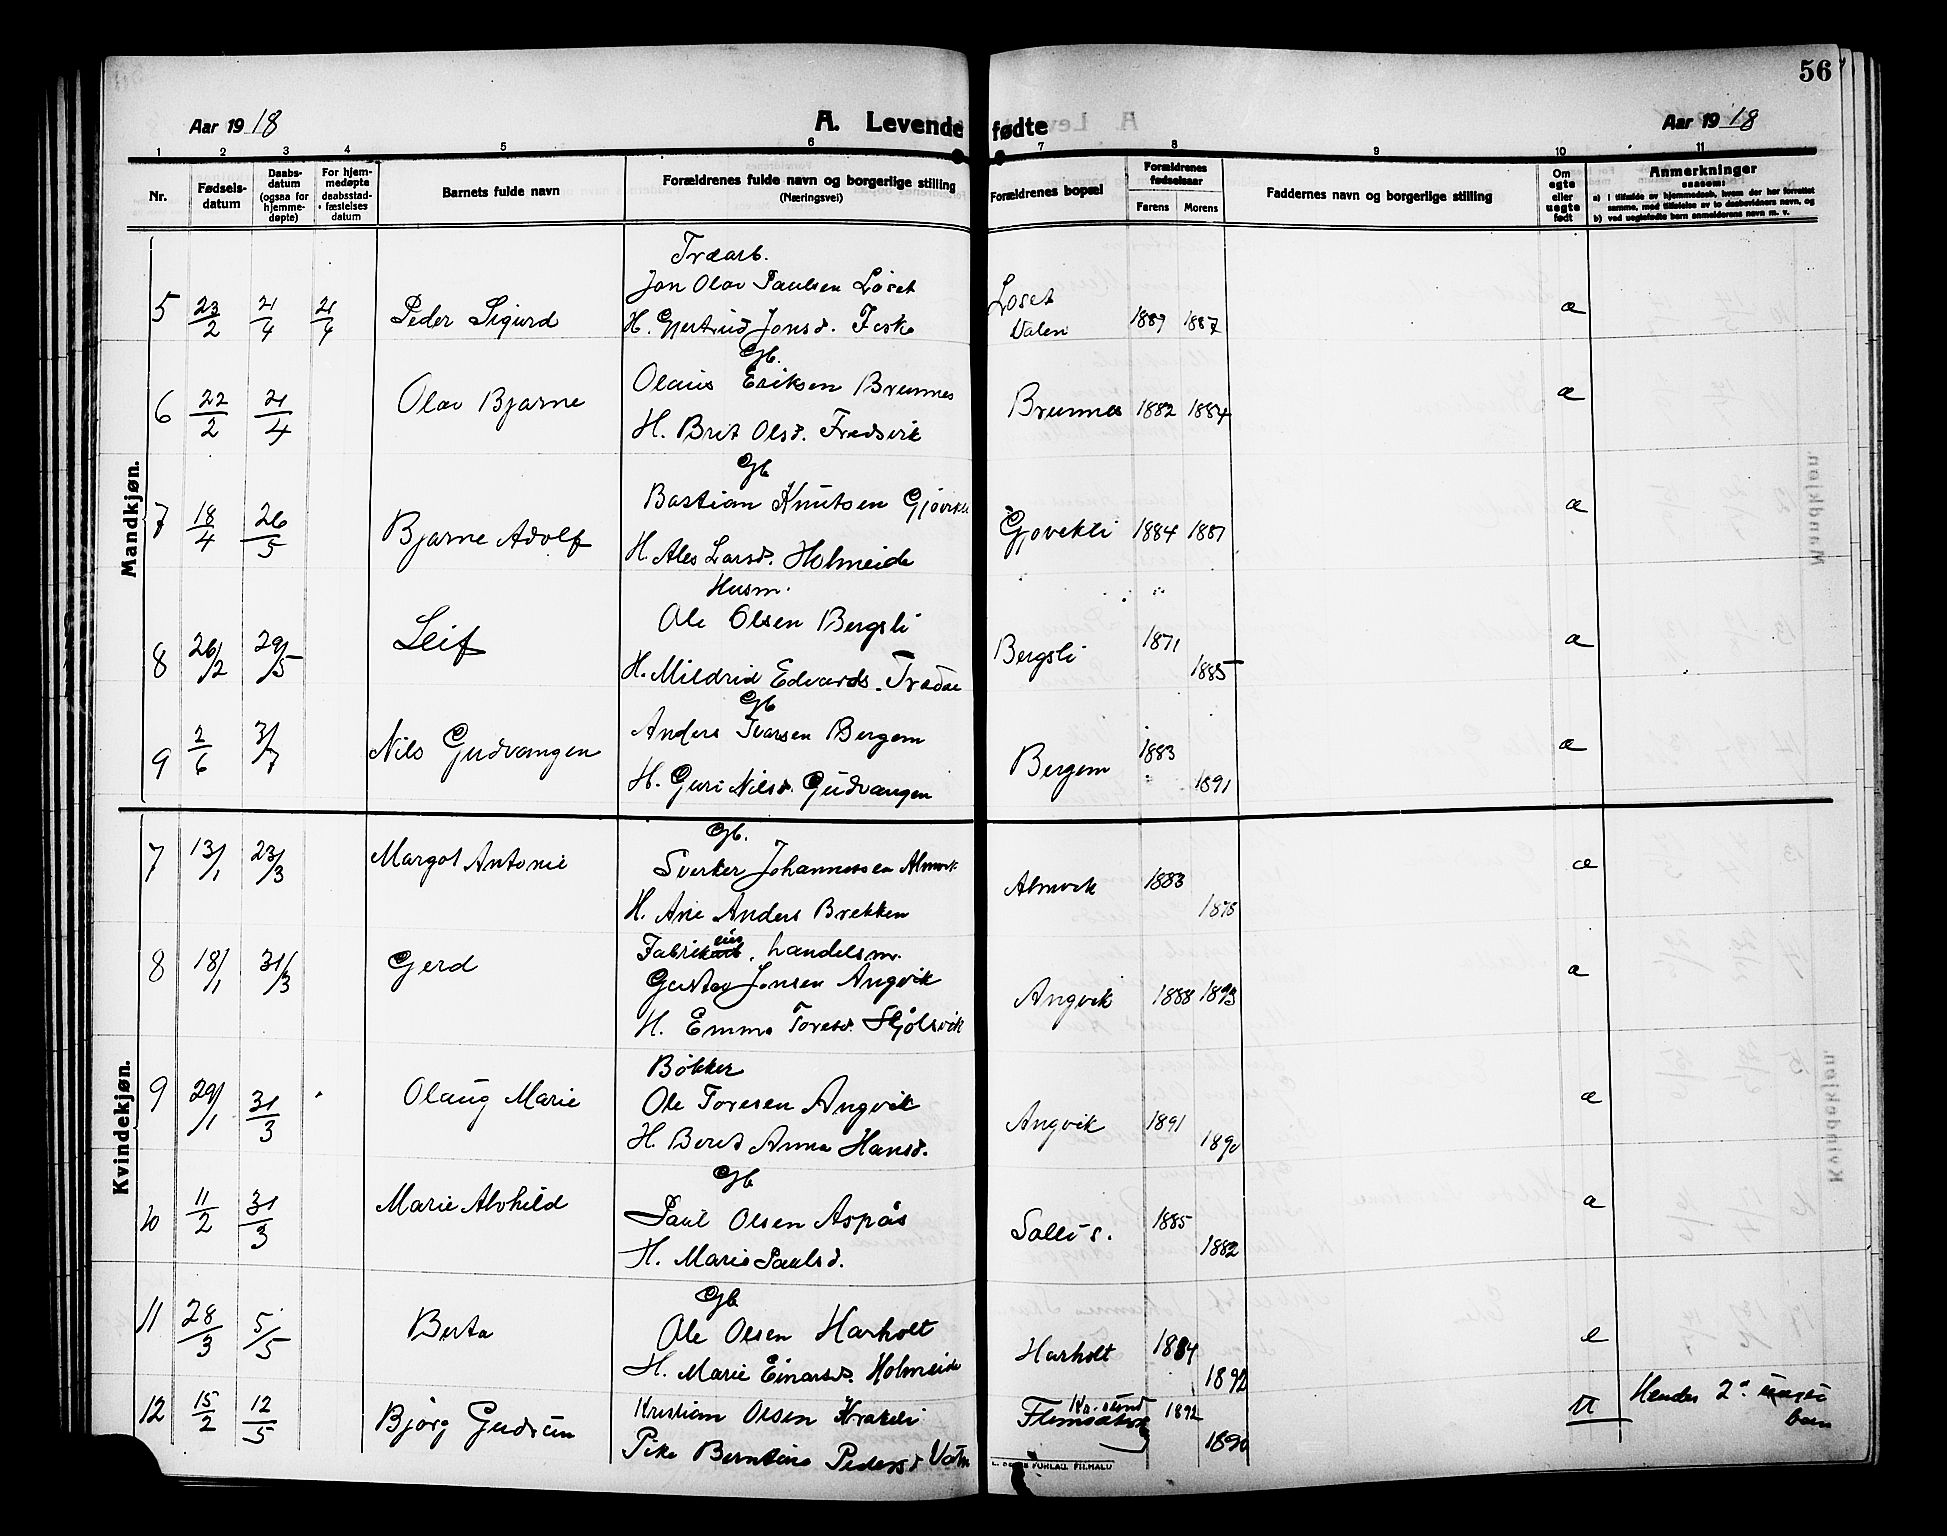 56
Aar 1918 A. Levende fødte Aar 1918
1 2 3 4 5 6 7 8 9 10 11
Nr. Fødselsdatum Daabsdatum (ogsaa for hjemmedøpte) For hjemmedøpte daabsstadfæstelses datum Barnets fulde navn Forældrenes fulde navn og borgerlige stilling (Næringsvei) Forældrenes bopæl Forældrenes fødselsaar Farens Morens Faddernes navn og borgerlige stilling Om egte eller uegte født Anmerkninger saasom:
a) i tilfælde av hjemmedaab, hvem der har forrettet samme, med tilføielse av to daabsvidners navn, og
b) ved uegtefødte barn anmelderens navn m. v.
Mandkjøn.
Træarb.
Jon Olav Paulsen Løset Løset
5 23/2 21/4 21/4 Peder Sigurd H. Gjertrud Jonsd. Fiske Valen 1889 1887 æ
Gb.
Olaus Eriksen Brunnes
6 22/2 21/4 Olav Bjarne Brunnes 1882 1884 æ
H. Brit Olsd. Fredsvik
Gb
Bastian Knutsen
7 18/4 26/5 Bjarne Adolf Gjøvikli 1884 1887 æ
H. Ales Larsd. Holmeide
Husm.
Ole Olsen Bergsli
8 26/2 29/5 Leif Bergsli 1871 1885 æ
H. Mildrid Edvards. Trædal
Gb
Anders Ivarsen Bergem
9 2/6 3/7 Nils Gudvangen Bergem 1883 1891 æ
H. Guri Nilsd. Gudvangen
Kvindekjøn.
Gb.
7 13/1 23/3 Margot Antonie Sverker Johannessen Almvik Almvik 1883 1878 æ
H. Ane Anders Brekken
Fabrikeier, handelsm.
8 18/1 31/3 Gerd Gustav Jonsen Angvik Angvik 1888 1893 æ
H. Emma Toresd. Skjølsvik
Bøkker
9 29/1 31/3 Olaug Marie Ole Toresen Angvik Angvik 1891 1890 æ
H. Beret Anna Hansd.
Gb
10 11/2 31/3 Marie Alvhild Paul Olsen Aspås 1885 1882 æ
H. Marie Paulsd.
Gb
11 28/3 5/5 Berta Ole Olsen Harholt Harholt 1884 1892 e
H. Marie Einarsd. Holmeide
12 15/2 12/5 Bjørg Gudrun Kristian Olsen Kr.sund 1892 1890 u Hendes 2. uegte barn
Pike Berntine Pedersd